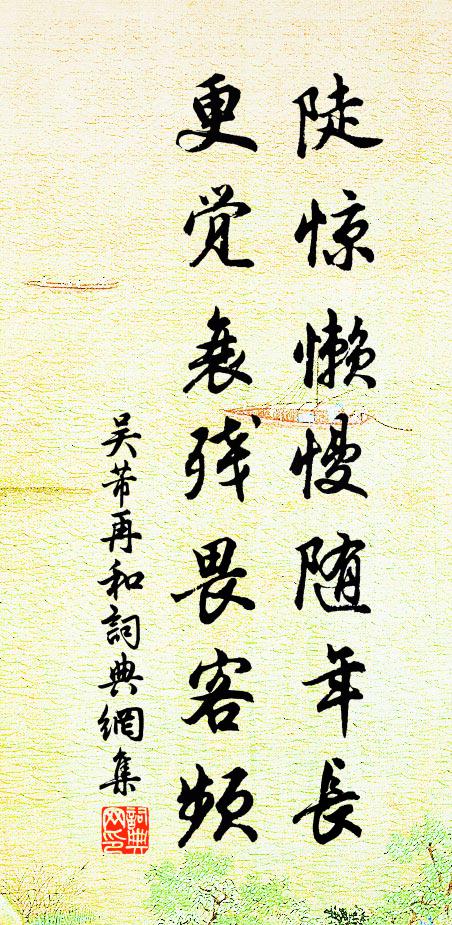 陡惊懒慢随年长
更觉衰残畏客频
吴芾再和詞典網集
詞典网印